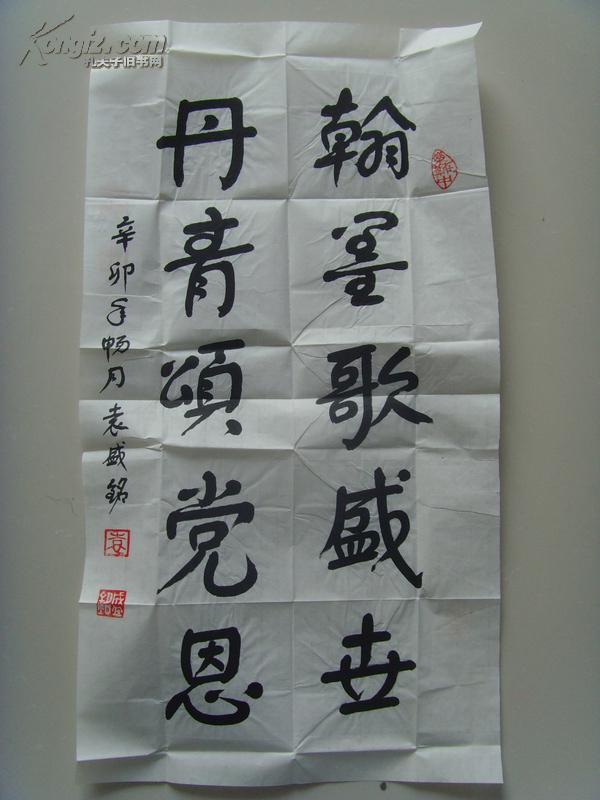 翰墨歌盛世
丹青頌党恩
辛卯年畅月袁盛銘
袁
Kongfz.com
孔夫子旧书网